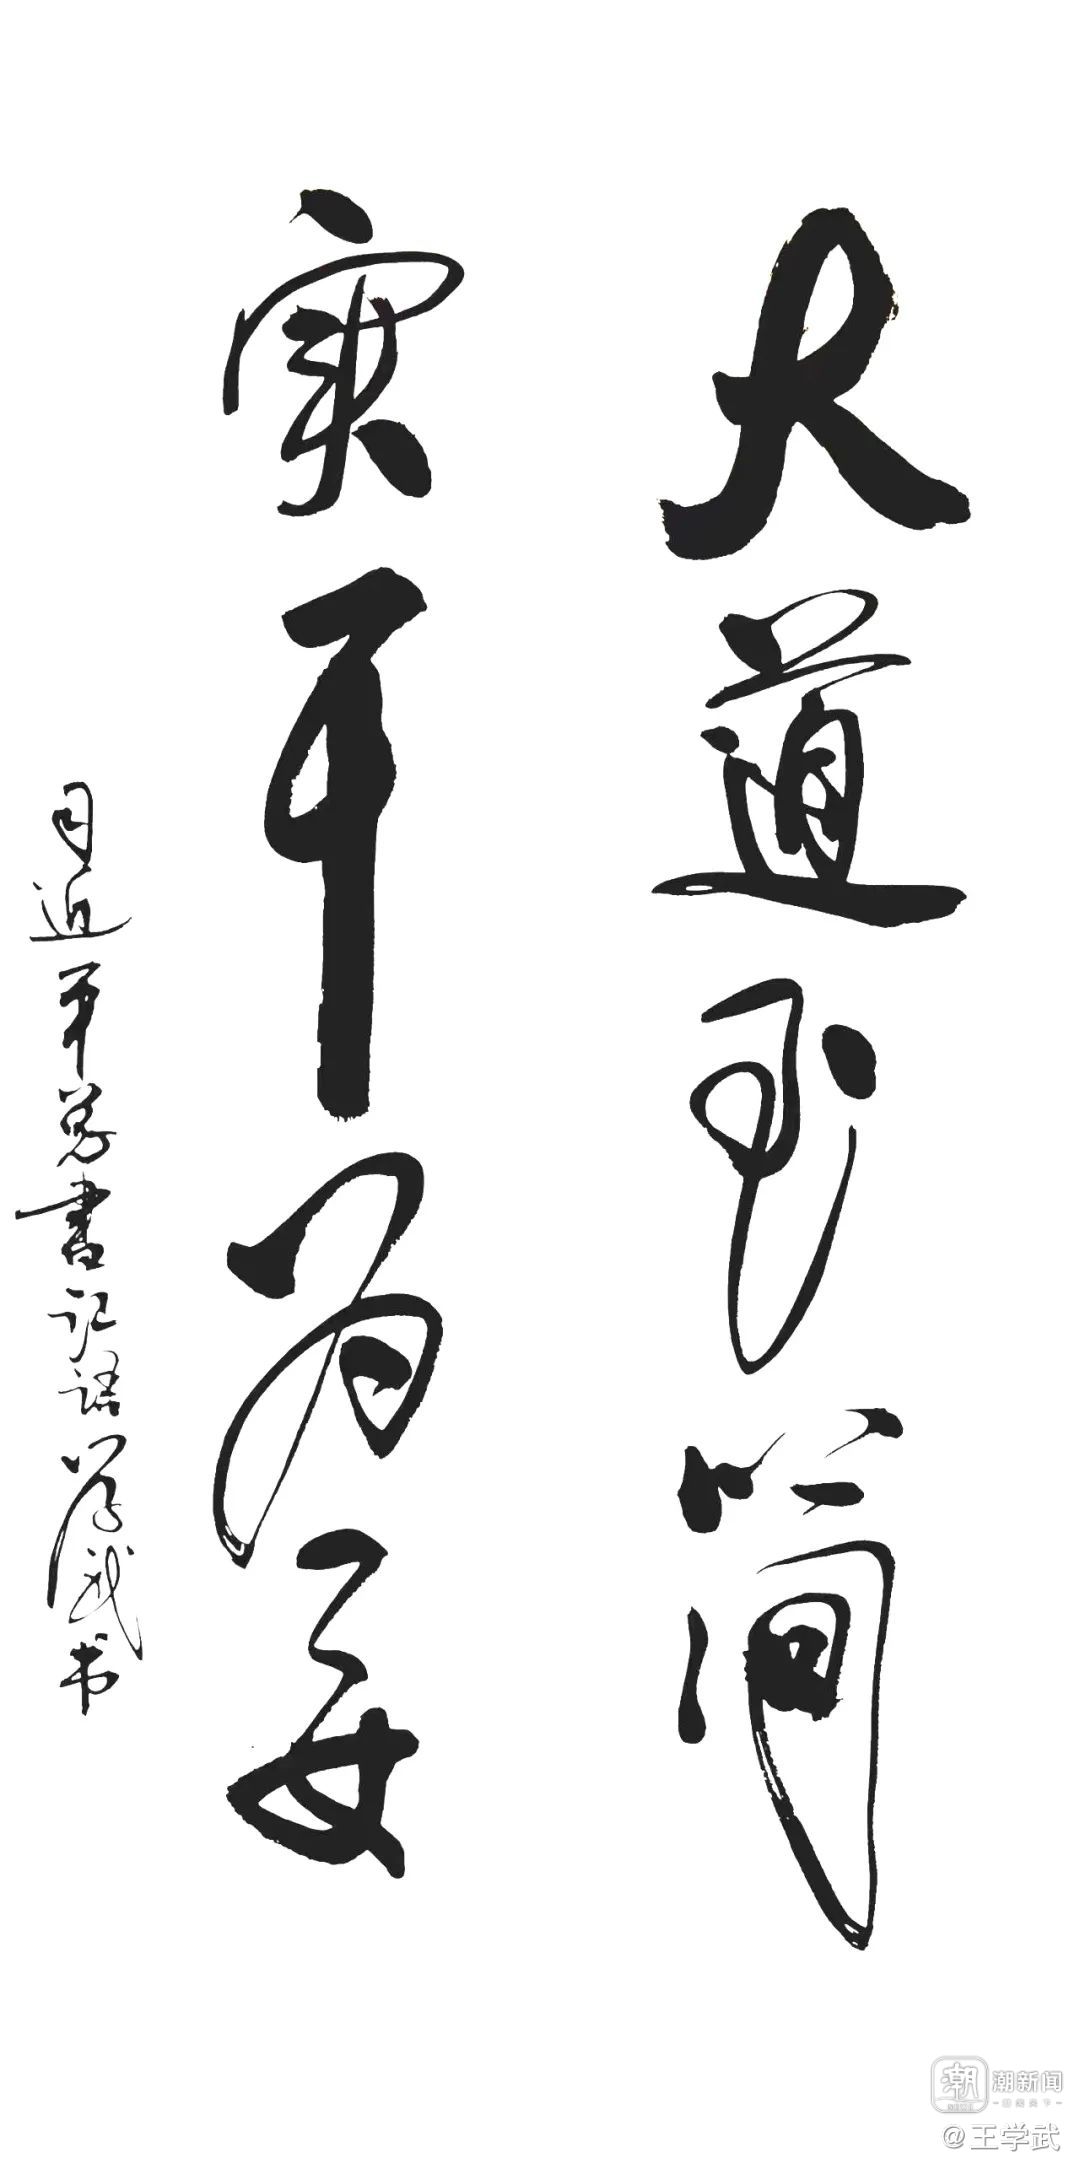 大道至简
实干为要
习近平总書记语学武书
潮新闻
@王学武